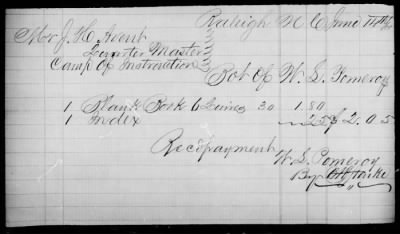 Raleigh N C June 14th
Mr J. H. Avent
Quarter Master
Camp Of Instruction
Bot Of W. L. Pomeroy
1 Blank Book 6 Quires 30 1 80
1 Index 25 $ 2.05
Rec payment
W. L. Pomeroy
By